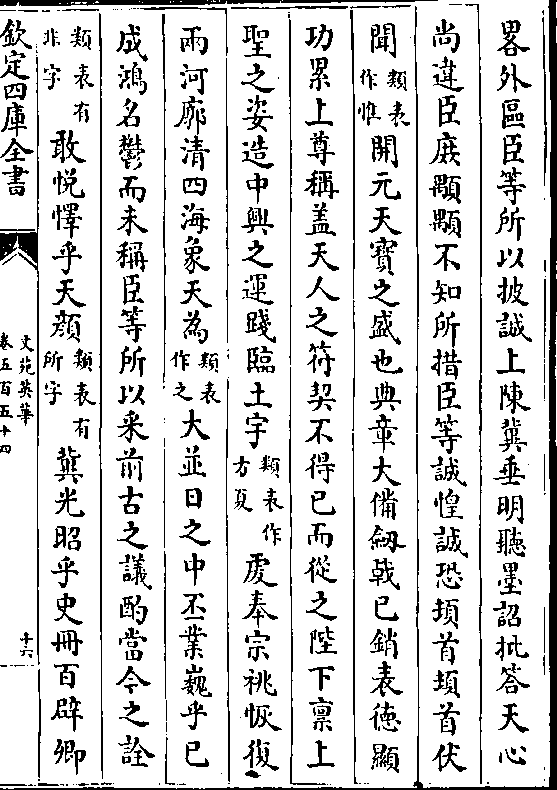 畧外區臣等所以披誠上陳冀垂明聽墨詔批答天心
尚違臣庻顒顒不知所措臣等誠惶誠恐頓首頓首伏
聞類表作惟開元天寳之盛也典章大備劒戟已銷表徳顯
功累上尊稱盖天人之符契不得已而從之陛下禀上
聖之姿造中興之運踐臨土宇類表作方夏虔奉宗祧恢復
兩河廓清四海象天為類表作之大並日之中丕業巍乎已
成鴻名鬱而未稱臣等所以采前古之議酌當今之詮
類表有非字敢悦懌乎天顔類表有所字冀光昭乎史冊百辟卿
欽定四庫全書
文苑英華
卷五百五十四
十六